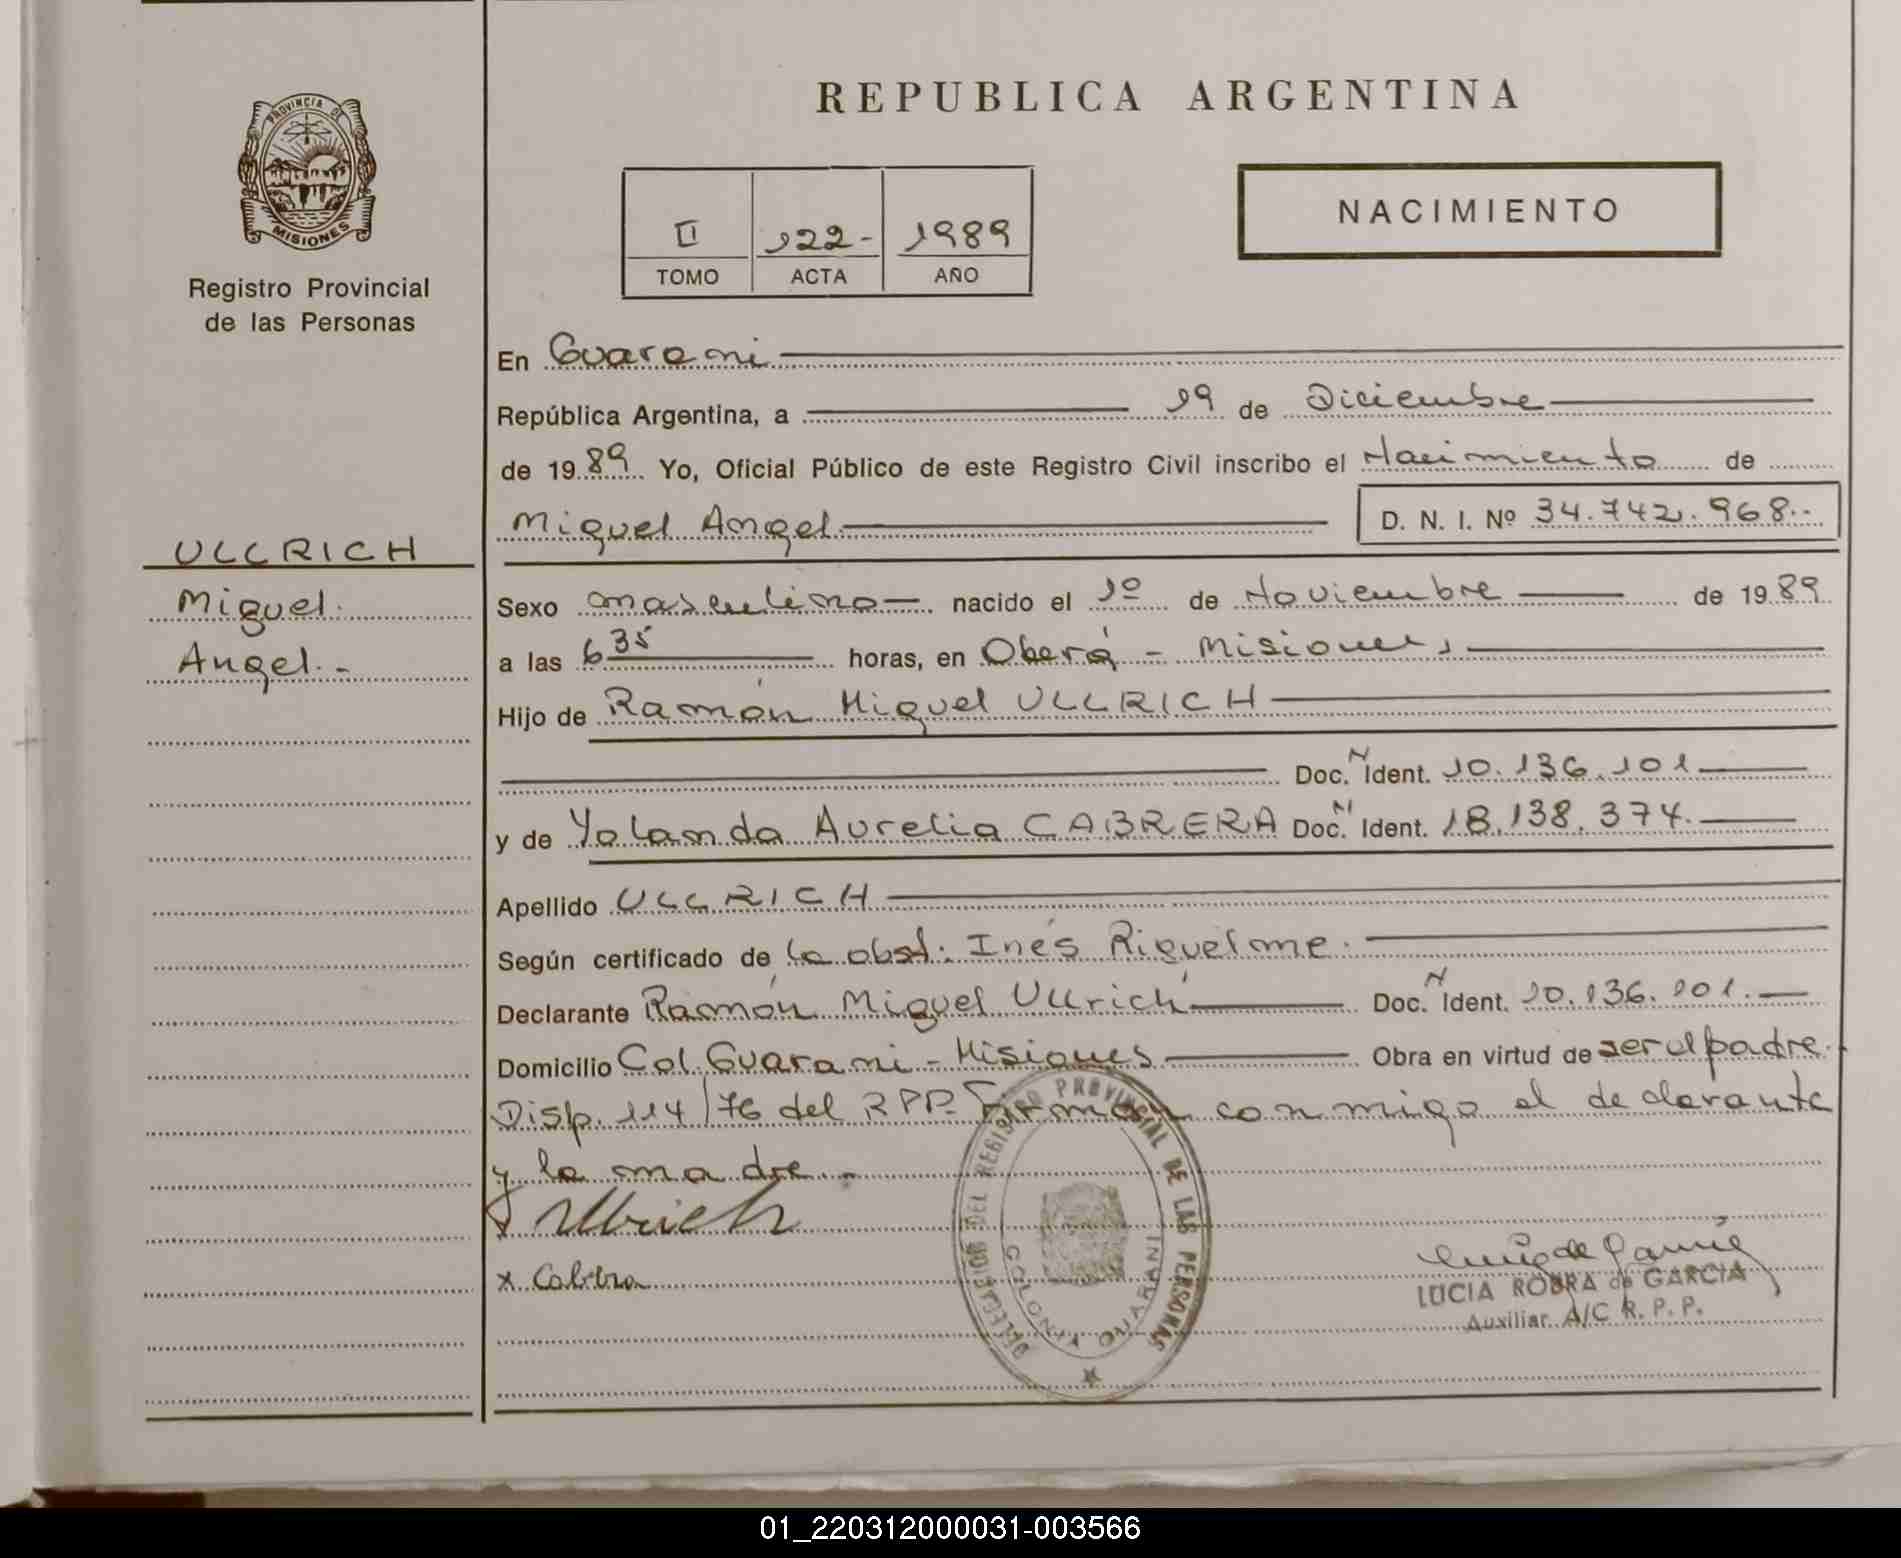 REPUBLICA ARGENTINA
PROVINCIA DE
MISIONES
Registro Provincial
de las Personas
NACIMIENTO
II 122- 1989
TOMO ACTA AÑO
En Guarani
República Argentina, a 19 de Diciembre
de 1989 Yo, Oficial Público de este Registro Civil inscribo el Nacimiento de
Miguel Angel D. N. I. Nº 34.742.968.-
ULLRICH
Miguel
Angel.-
Sexo masculino nacido el 1º de Noviembre de 1989
a las 6 35 horas, en Oberá - Misiones
Hijo de Ramón Miguel ULLRICH
Doc. N Ident. 10.136.101
y de Yolanda Aurelia CABRERA Doc. N Ident. 18.138.374.
Apellido ULLRICH
Según certificado de la obst. Inés Riquelme.
Declarante Ramón Miguel Ullrich Doc. N Ident. 10.136.101.
Domicilio Col. Guarani - Misiones Obra en virtud de ser el padre.
Disp. 114/76 del RPP. Firman conmigo el declarante
y la madre.-
x Ullrich
x Cabrera
DELEGACION DEL REGISTRO PROVINCIAL DE LAS PERSONAS
COLONIA GUARANI
LUCIA ROBRA de GARCIA
Auxiliar A/C R. P. P.
01_220312000031-003566